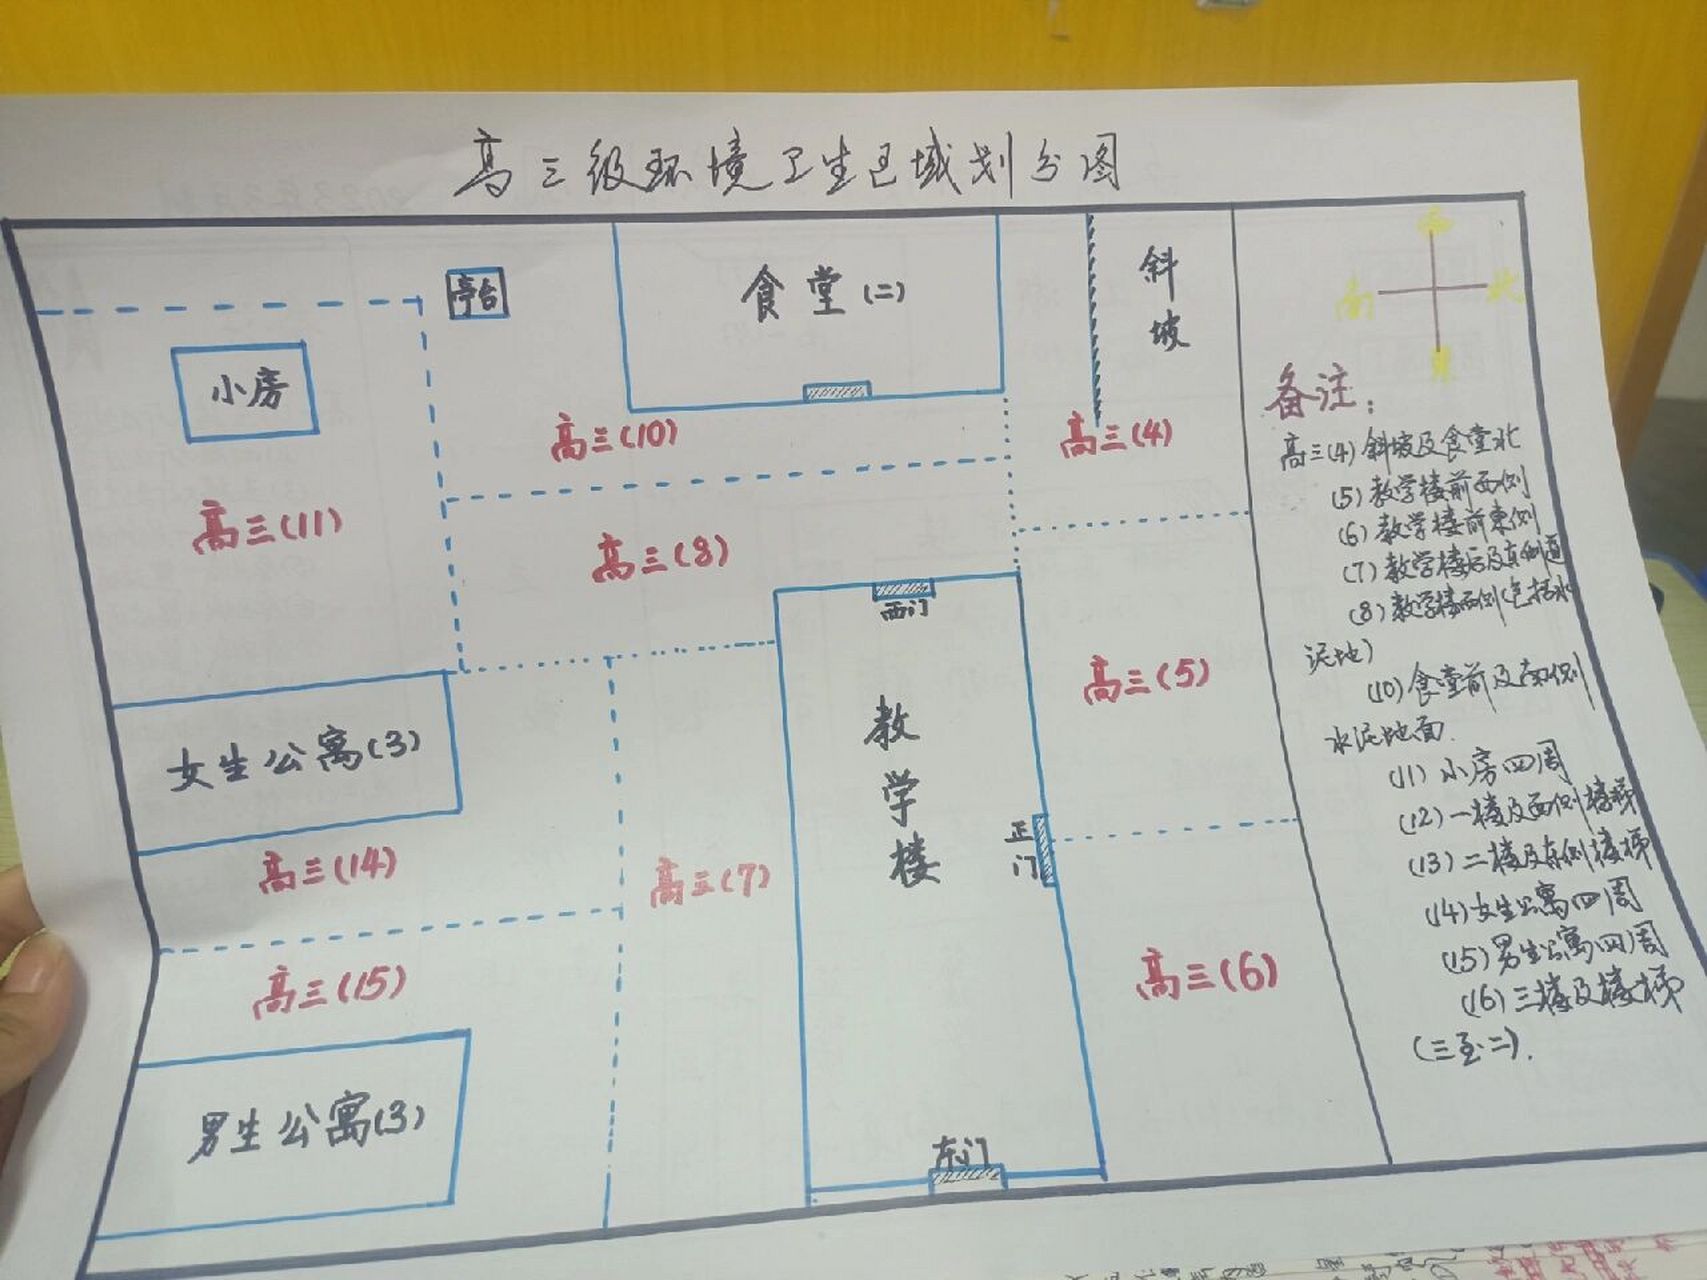 高三级环境卫生区域划分图
亭台
食堂(二)
斜坡
西
南
北
东
小房
高三(10)
高三(4)
高三(11)
高三(8)
西门
女生公寓(3)
教学楼
高三(5)
正门
高三(14)
高三(7)
高三(15)
高三(6)
男生公寓(3)
东门
备注:
高三(4)斜坡及食堂北
(5)教学楼前西侧
(6)教学楼前东侧
(7)教学楼后及东侧道
(8)教学楼西侧(包括水
泥地)
(10)食堂前及南侧
水泥地面.
(11)小房四周
(12)一楼及西侧楼梯
(13)二楼及东侧楼梯
(14)女生公寓四周
(15)男生公寓四周
(16)三楼及楼梯
(三至二).